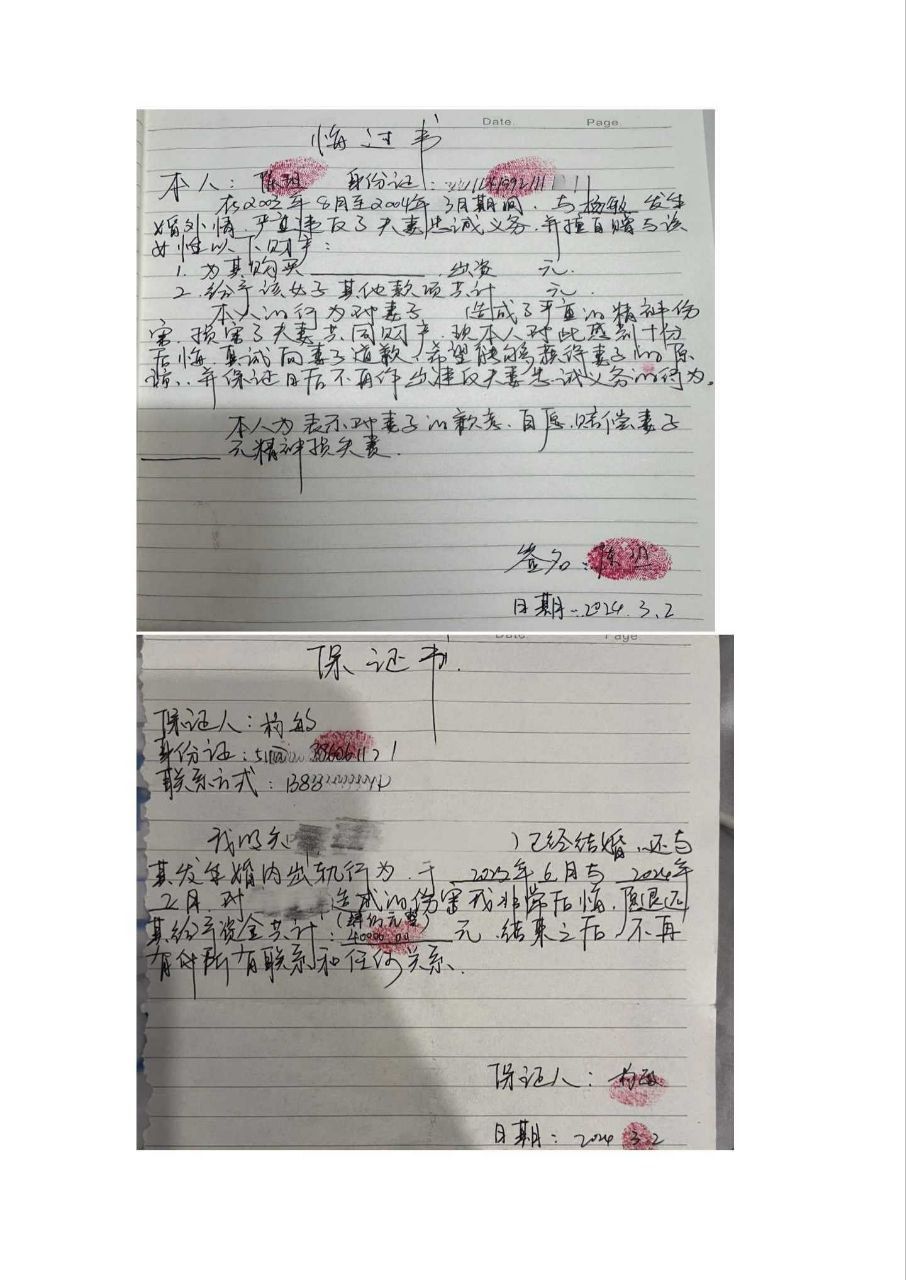 Date.
Page.
悔过书
本人：陈班 身份证：
在2003年8月至2004年3月期间，与杨敏发生
婚外情，严重违反了夫妻忠诚义务，并擅自赠与该
女性以下财产：
1. 为其购买 出资 元.
2. 给予该女子其他款项共计 元.
本人的行为对妻子 造成了严重的精神伤
害，损害了夫妻共同财产，现本人对此感到十分
后悔，真诚向妻子道歉，希望能够获得妻子的原
谅，并保证日后不再作出违反夫妻忠诚义务的行为。
本人为表示对妻子的歉意，自愿赔偿妻子
元精神损失费.
签名：陈班
日期：2024.3.2
Date.
Page
保证书.
保证人：杨敏
身份证：
联系方式：
我明知 ）已经结婚，还与
其发生婚内出轨行为，于 年6月与2024年
2月，对 造成的伤害我非常后悔，愿退还
其给予资金共计：40000.00元，结束之后，不再
有任何联系和任何关系.
保证人：杨敏
日期：2024 3.2